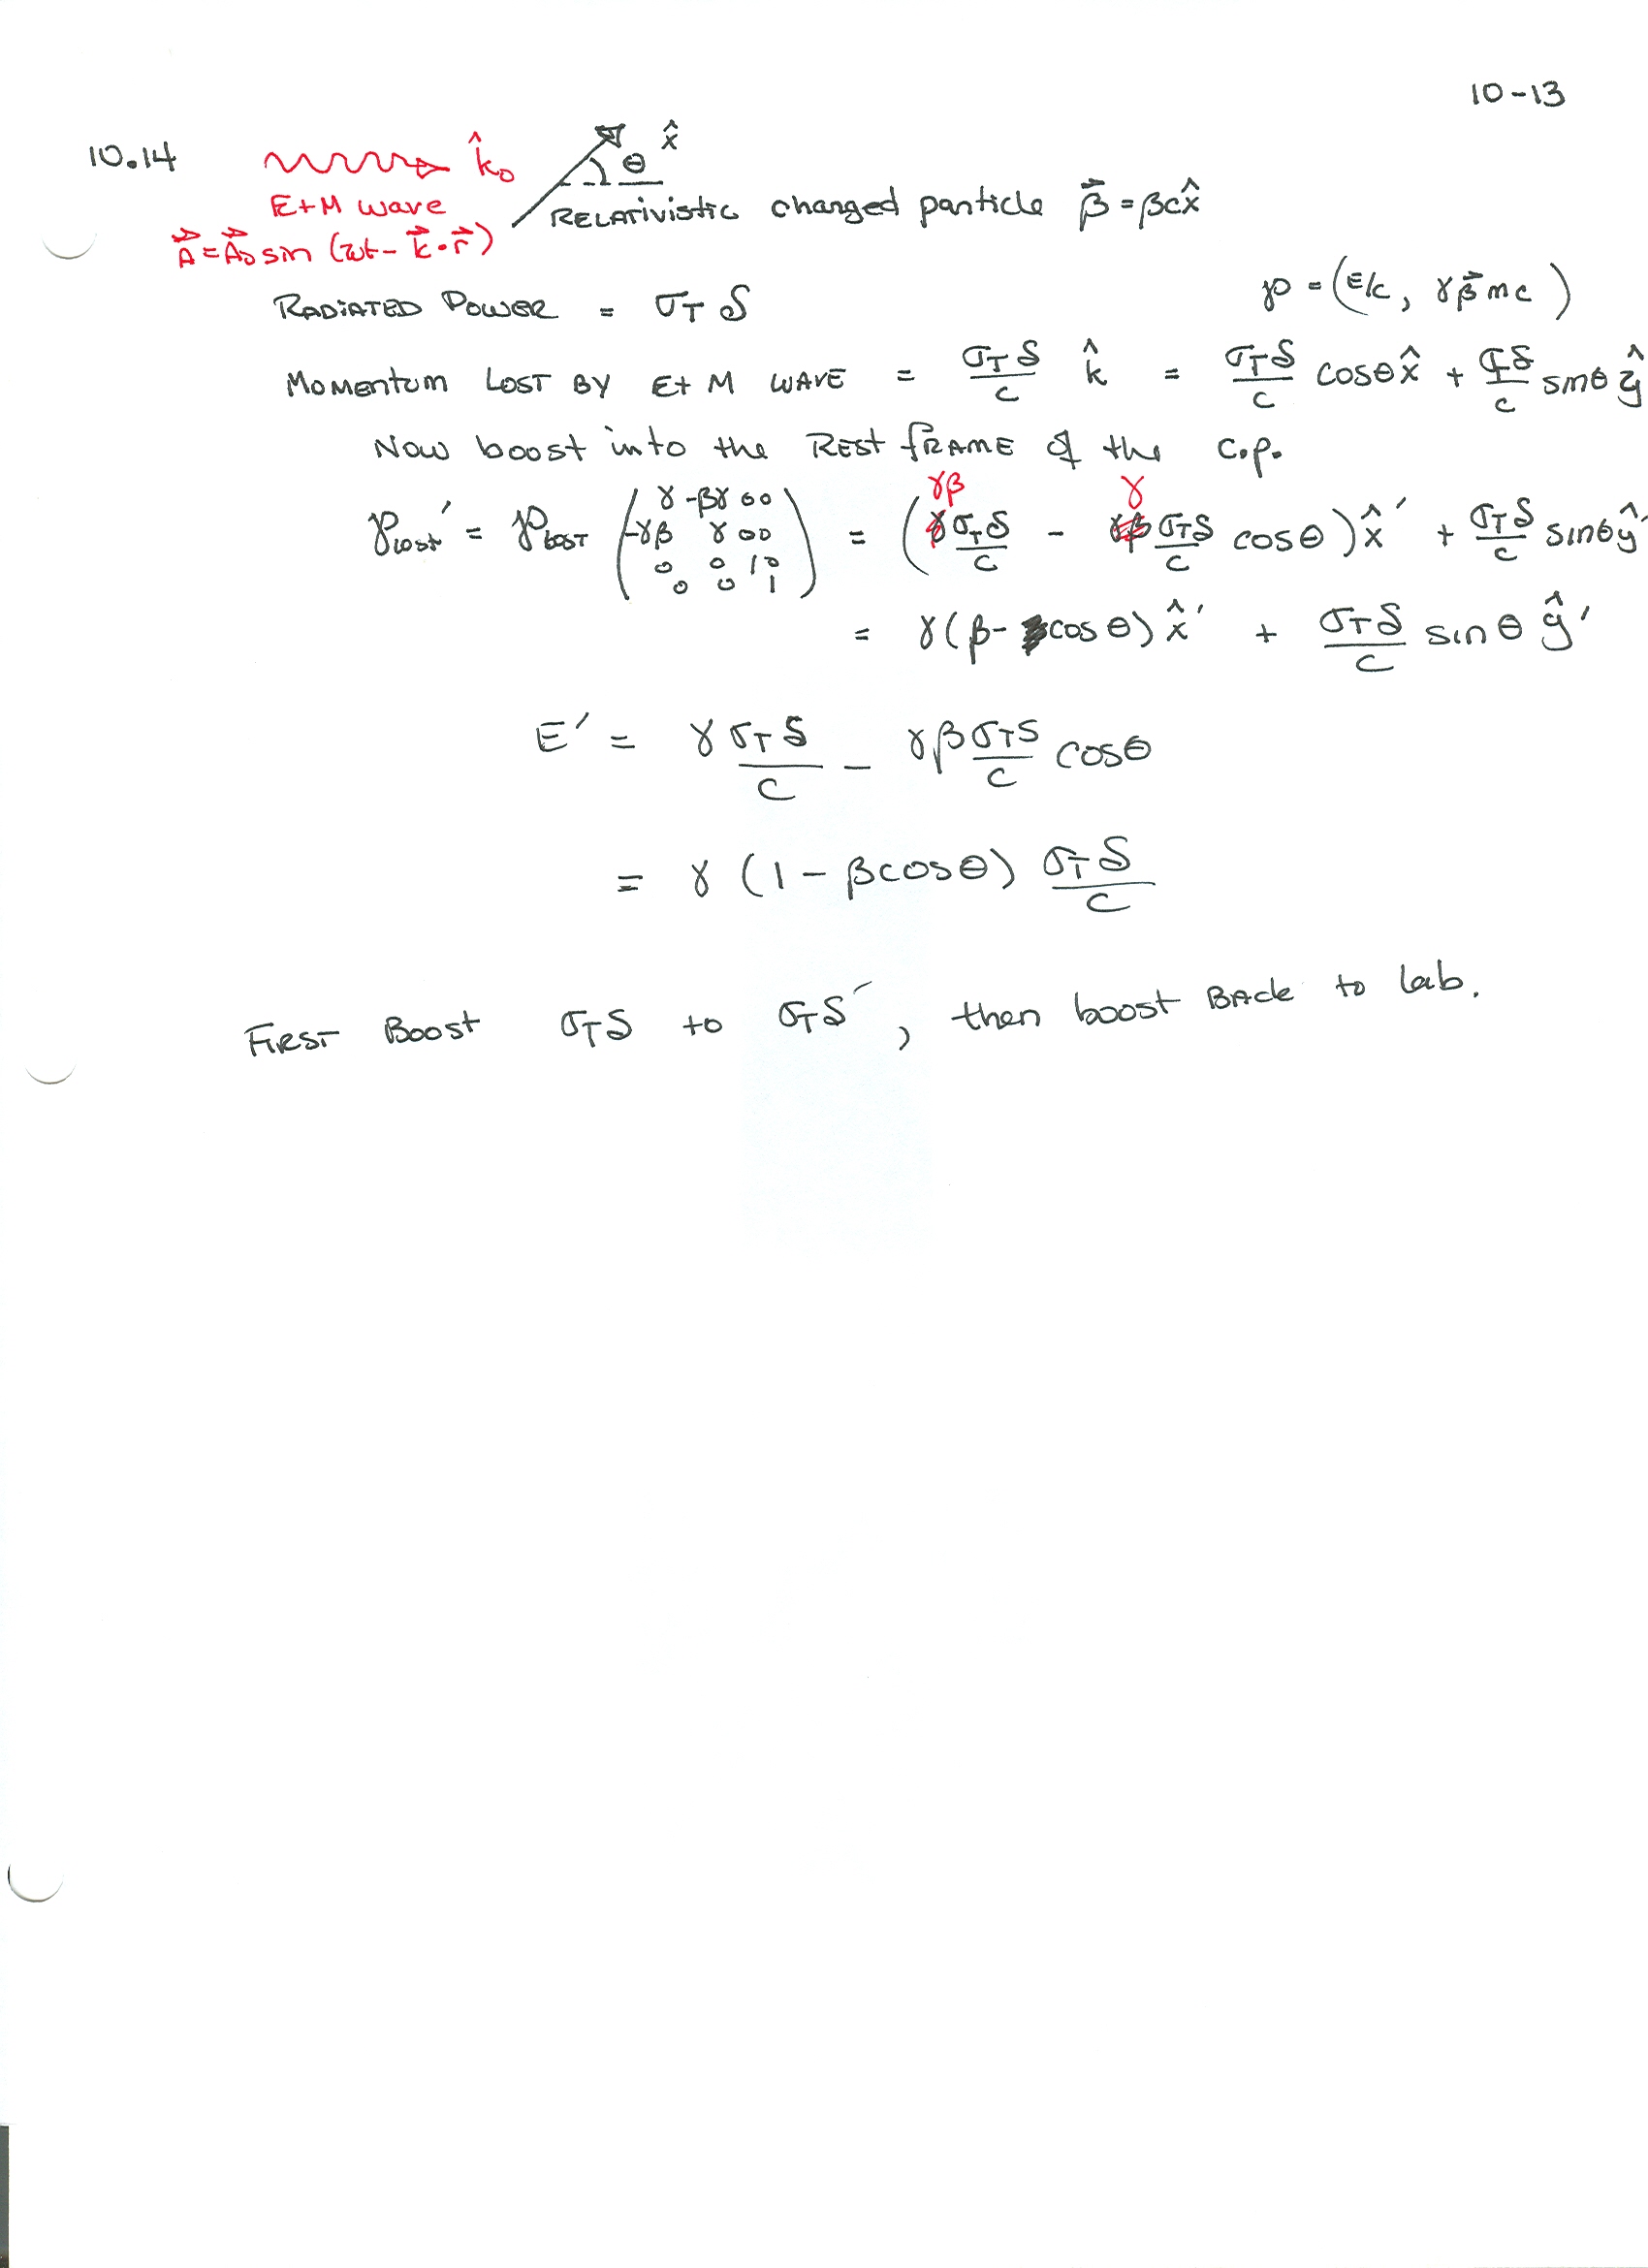 10-13
10.14 k̂₀ θ x̂
E+M wave RELATIVISTIC charged particle β⃗ = βcx̂
A⃗ = A⃗₀ sin (ωt - k⃗·r⃗)
RADIATED POWER = σ_T S
℘ = (E/c, γβ⃗mc)
MOMENTUM LOST BY E+M WAVE = σ_T S/c k̂ = σ_T S/c cosθ x̂ + σ_T S/c sinθ ŷ
NOW boost into the REST FRAME of the c.p.
γβ γ
℘lost' = ℘LOST (γ -βγ 0 0 / -γβ γ 0 0 / 0 0 1 0 / 0 0 1) = (γ σ_T S/c - γβ σ_T S/c cosθ) x̂' + σ_T S/c sinθ ŷ'
= γ(β - cosθ) x̂' + σ_T S/c sinθ ŷ'
E' = γ σ_T S/c - γβ σ_T S/c cosθ
= γ (1 - βcosθ) σ_T S/c
FIRST BOOST σ_T S to σ_T S', then boost BACK to lab.